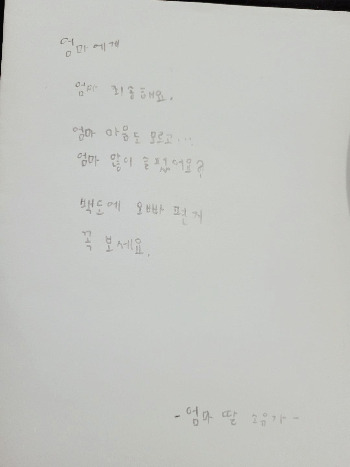 엄마에게
엄마 죄송해요.
엄마 마음도 모르고...
엄마 많이 슬펐어요?
백도에 오빠 편지
꼭 보세요.
-엄마 딸